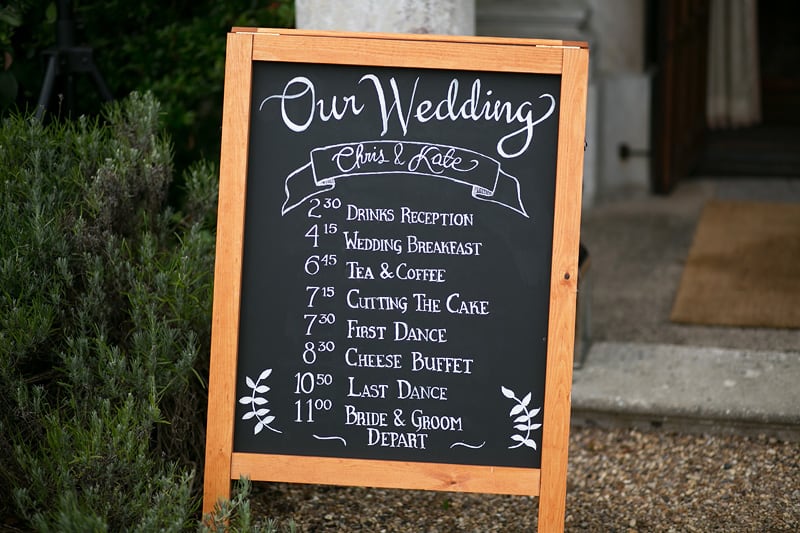 Our Wedding
Chris & Kate
2 30 Drinks Reception
4 15 Wedding Breakfast
6 45 Tea & Coffee
7 15 Cutting The Cake
7 30 First Dance
8 30 Cheese Buffet
10 50 Last Dance
11 00 Bride & Groom
Depart